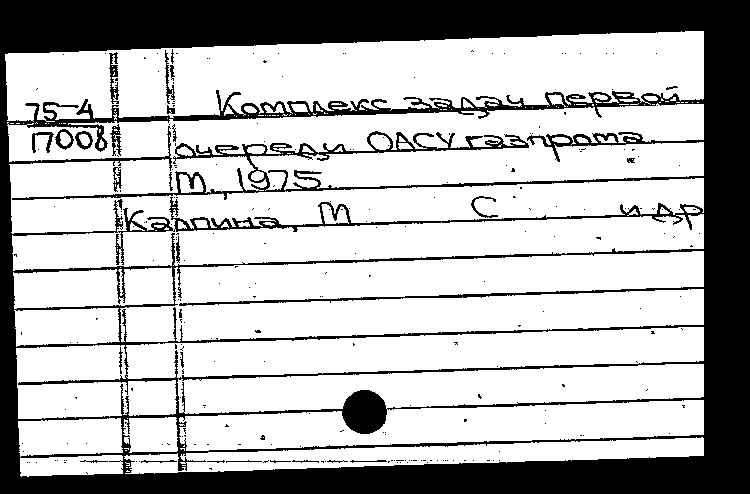 75-4
17008
Комплекс задач первой
очереди ОАСУ газпрома
М., 1975.
Калинина, М С и др